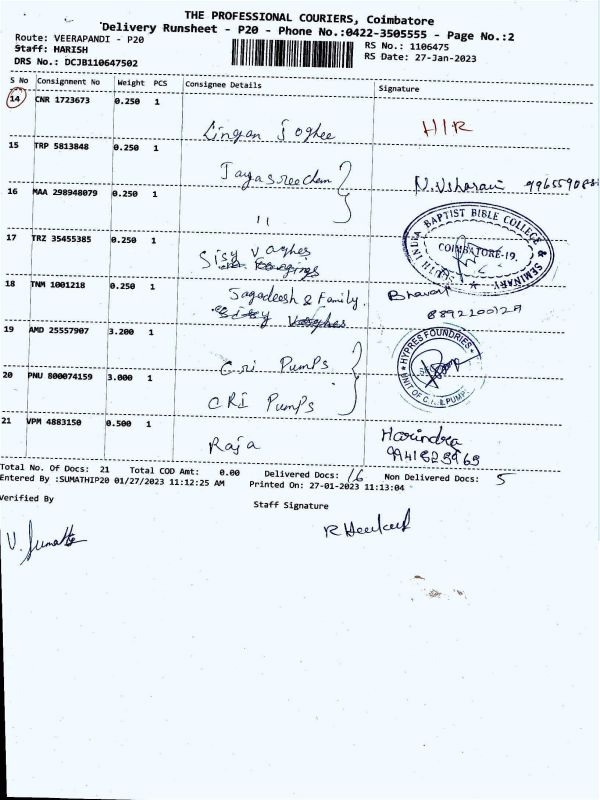 THE PROFESSIONAL COURIERS, Coimbatore
Delivery Runsheet - P20 - Phone No.:0422-3505555 - Page No.:2
Route: VEERAPANDI - P20
RS No.: 1106475
Staff: HARISH
RS Date: 27-Jan-2023
DRS No.: DCJB110647502
S No Consignment No Weight PCS Consignee Details Signature
14 CNR 1723673 0.250 1
Lingan Joghee HIR
15 TRP 5813848 0.250 1
Jayasreechem
16 MAA 298948079 0.250 1
"
SOUTH INDIA BAPTIST BIBLE COLLEGE & SEMINARY
COIMBATORE-19.
17 TRZ 35455385 0.250 1
Sisy Varghes
18 TNM 1001218 0.250 1
Jagadeesh & Family. Bharat
19 AMD 25557907 3.200 1
HYPRES FOUNDRIES
Cri Pumps
20 PNU 800074159 3.000 1
CRI Pumps
21 VPM 4883150 0.500 1
Raja Harindra
Total No. Of Docs: 21 Total COD Amt: 0.00 Delivered Docs: 16 Non Delivered Docs: 5
Entered By :SUMATHIP20 01/27/2023 11:12:25 AM Printed On: 27-01-2023 11:13:04
Verified By
Staff Signature
V. Sumathi